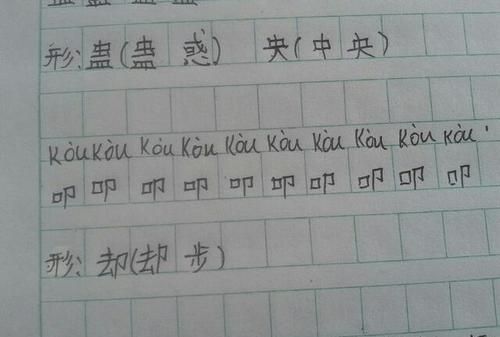 形:蛊(蛊惑) 央(中央)
kòu kòu kòu kòu kòu kòu kòu kòu kòu kòu
叩 叩 叩 叩 叩 叩 叩 叩 叩 叩
形:却(却步)